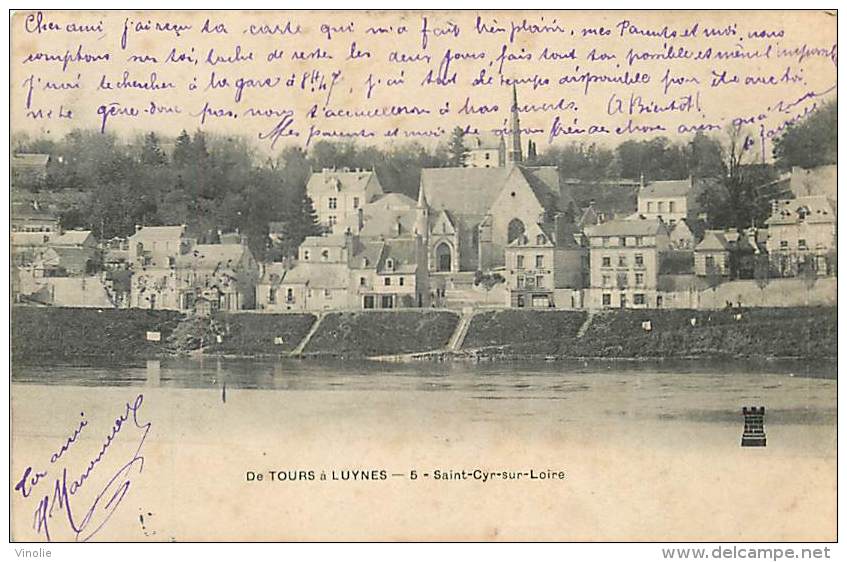 Cher ami, j'ai reçu ta carte qui m'a fait bien plaisir, mes Parents et moi, nous
comptons sur toi, tache de rester les deux jours, fais tout ton possible et même l'impossible
J'irai te chercher à la gare à 8H47, j'ai tout le temps disponible pour être avec toi.
ne te gêne donc pas, nous t'accueillerons à bras ouverts. A Bientôt!
Mes parents et moi te
Ton ami
De TOURS à LUYNES — 5 - Saint-Cyr-sur-Loire
Vinolie
http://www.delcampe.net